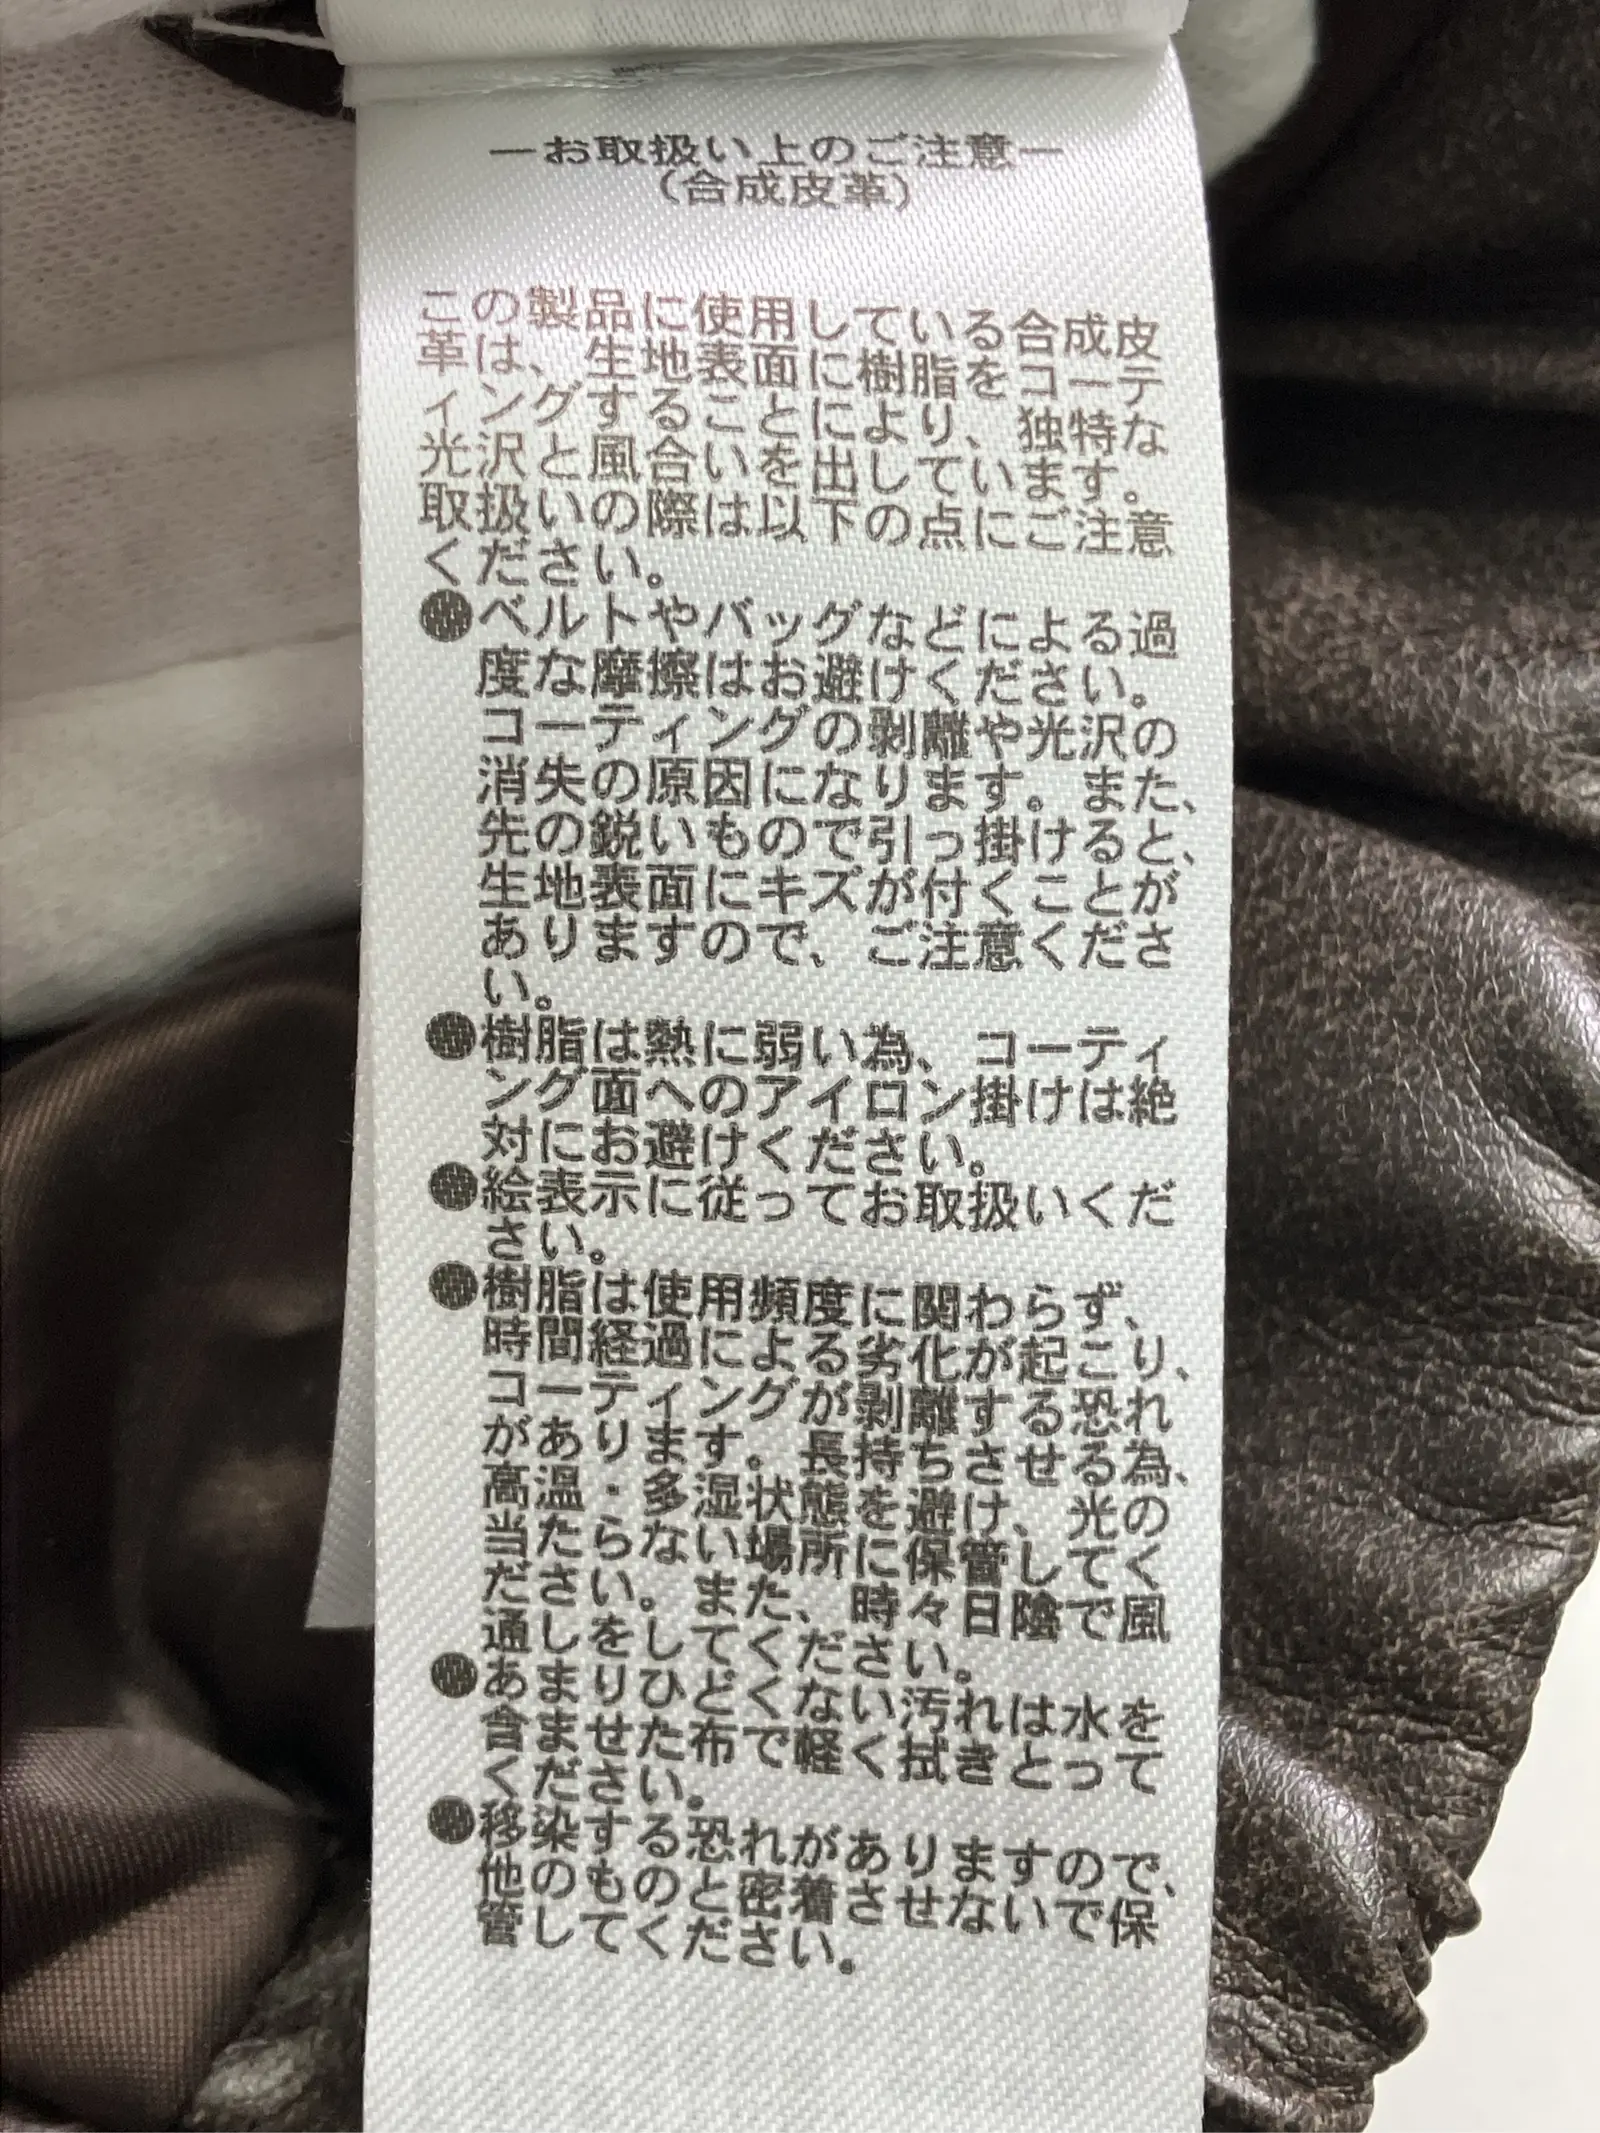 ーお取扱い上のご注意ー
(合成皮革)
この製品に使用している合成皮
革は、生地表面に樹脂をコーテ
ィングすることにより、独特な
光沢と風合いを出しています。
取扱いの際は以下の点にご注意
ください。
●ベルトやバッグなどによる過
度な摩擦はお避けください。
コーティングの剥離や光沢の
消失の原因になります。また、
先の鋭いもので引っ掛けると、
生地表面にキズが付くことが
ありますので、ご注意くださ
い。
●樹脂は熱に弱い為、コーティ
ング面へのアイロン掛けは絶
対にお避けください。
●絵表示に従ってお取扱いくだ
さい。
●樹脂は使用頻度に関わらず、
時間経過による劣化が起こり、
コーティングが剥離する恐れ
があります。長持ちさせる為、
高温・多湿状態を避け、光の
当たらない場所に保管してく
ださい。また、時々日陰で風
通しをしてください。
●あまりひどくない汚れは水を
含ませた布で軽く拭きとって
ください。
●移染する恐れがありますので、
他のものと密着させないで保
管してください。